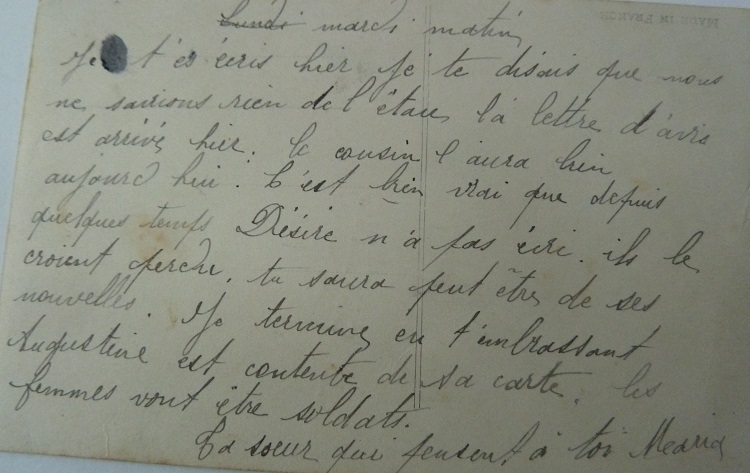 MADE IN FRANCE
Lundi mardi matin
Je t'es écris hier Je te disais que nous
ne savions rien de l'étau, la lettre d'avis
est arrivé hier. le cousin l'aura bien
aujourd hui. C'est bien vrai que depuis
quelques temps Désiré n'a pas écri. ils le
croient perdu, tu saura peut être de ses
nouvelles. Je termine en t'embrassant
Augustine est contente de sa carte. les
femmes vont être soldats.
Ta soeur qui pensent à toi Maria